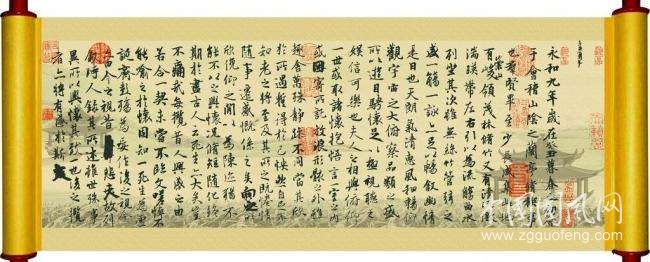 永和九年歲在癸丑暮春之初會
于會稽山陰之蘭亭脩禊事
也羣賢畢至少長咸集此地
有崇山峻領茂林脩竹又有清流激
湍暎帶左右引以為流觴曲水
列坐其次雖無絲竹管弦之
盛一觴一詠亦足以暢敘幽情
是日也天朗氣清惠風和暢仰
觀宇宙之大俯察品類之盛
所以遊目騁懷足以極視聽之
娛信可樂也夫人之相與俯仰
一世或取諸懷抱悟言一室之內
或因寄所託放浪形骸之外雖
趣舍萬殊靜躁不同當其欣
於所遇暫得於己快然自足不
知老之將至及其所之既惓情
隨事遷感慨係之矣向之所
欣俛仰之閒以為陳迹猶不
能不以之興懷況脩短隨化終
期於盡古人云死生亦大矣豈
不痛哉每攬昔人興感之由
若合一契未嘗不臨文嗟悼不
能喻之於懷固知一死生為虛
誕齊彭殤為妄作後之視今
亦由今之視昔悲夫故列
敘時人錄其所述雖世殊事
異所以興懷其致一也後之攬
者亦將有感於斯文
中国国风网
www.zgguofeng.com